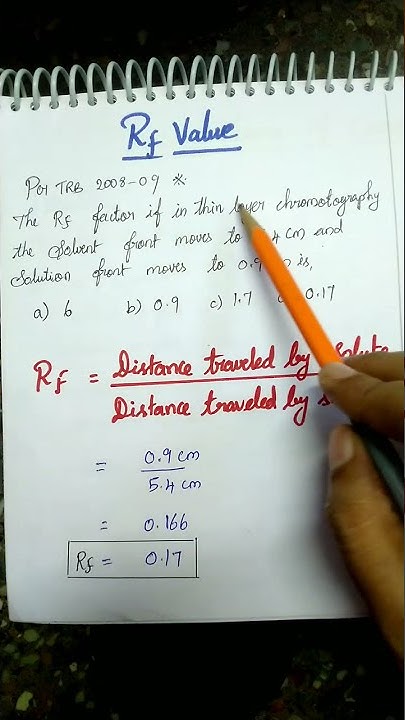 Rf Value
Por TRB 2008-09 *:
The Rf factor if in thin layer chromotography
the Solvent front moves to 4 cm and
Solution front moves to 0.9 is,
a) 6 b) 0.9 c) 1.7 0.17
Rf = Distance traveled by Solute
Distance traveled by
= 0.9 cm
5.4 cm
= 0.166
Rf = 0.17